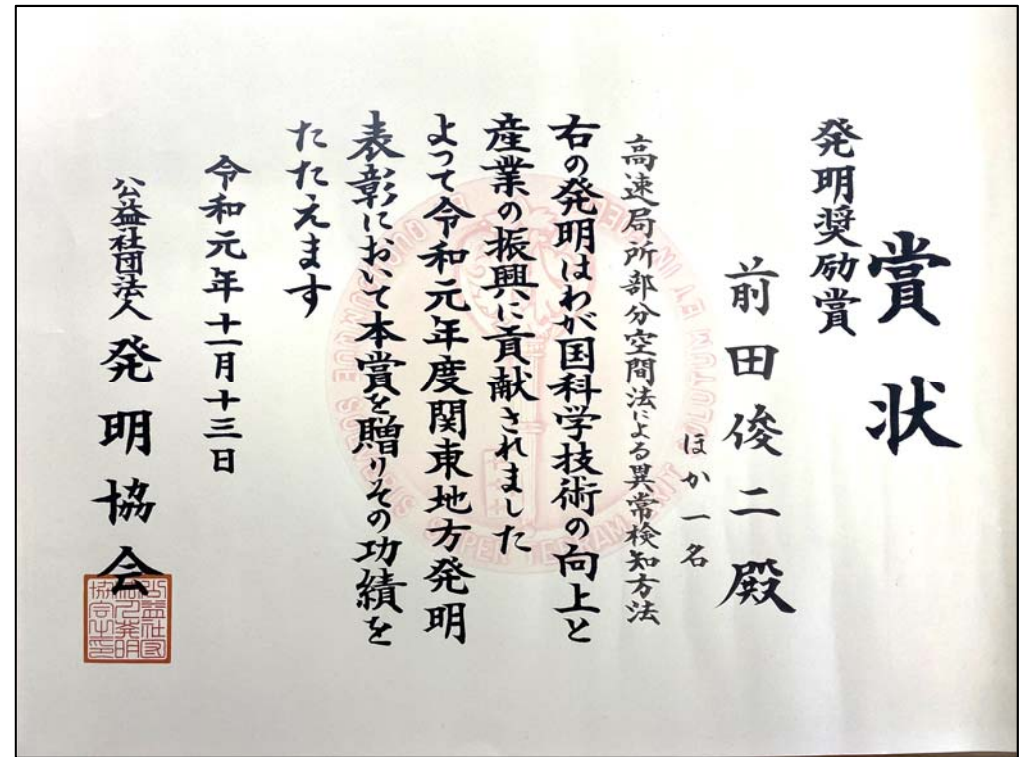 賞状
発明奨励賞
前田俊二殿
ほか一名
高速局所部分空間法による異常検知方法
右の発明はわが国科学技術の向上と
産業の振興に貢献されました
よつて令和元年度関東地方発明
表彰において本賞を贈りその功績を
たたえます
令和元年十一月十三日
公益社団法人 発明協会
公益社団
法人発明
協会之印